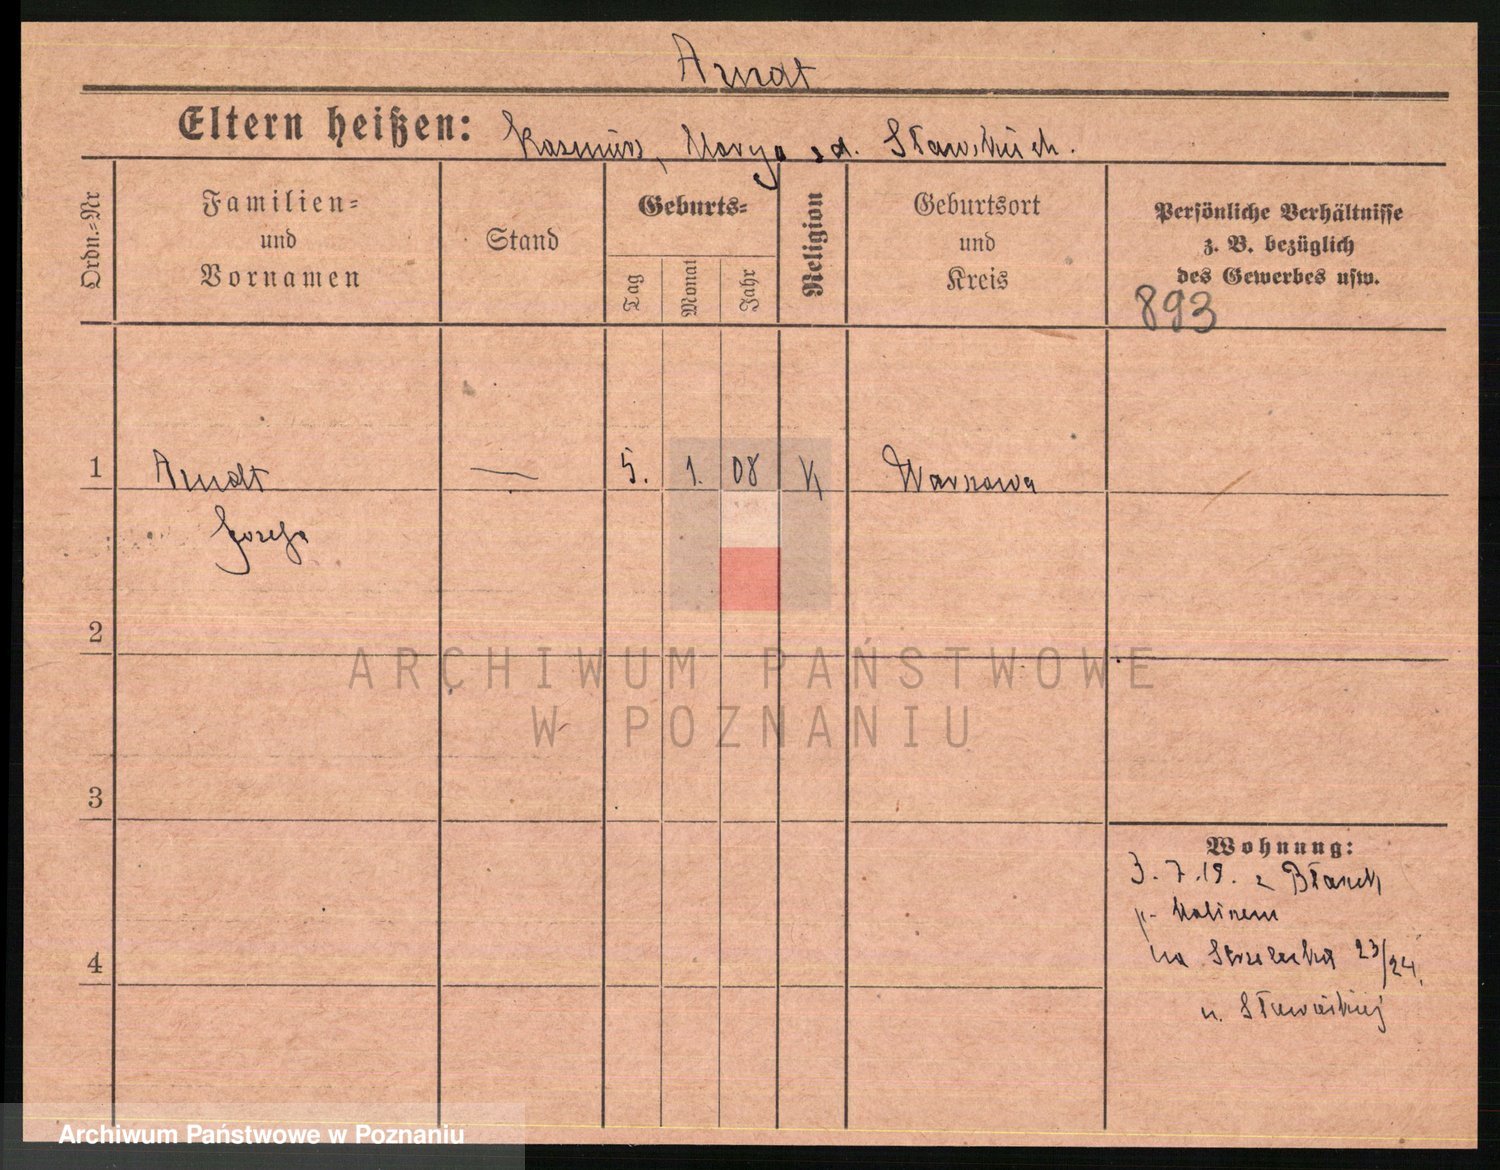 Arndt
Eltern heißen: Kasimirs, Marya
Ordn.-Nr
Familien- und Vornamen
Stand
Geburts-
Tag
Monat
Jahr
Religion
Geburtsort und Kreis
Persönliche Verhältnisse
z. B. bezüglich
des Gewerbes usw.
893
1 Arndt — 5. 1. 08 K Warszawa
Józefa
2
ARCHIWUM PAŃSTWOWE
W POZNANIU
3
Wohnung:
3. 7. 19. z
na Strzelecka 23/24,
4
Archiwum Państwowe w Poznaniu